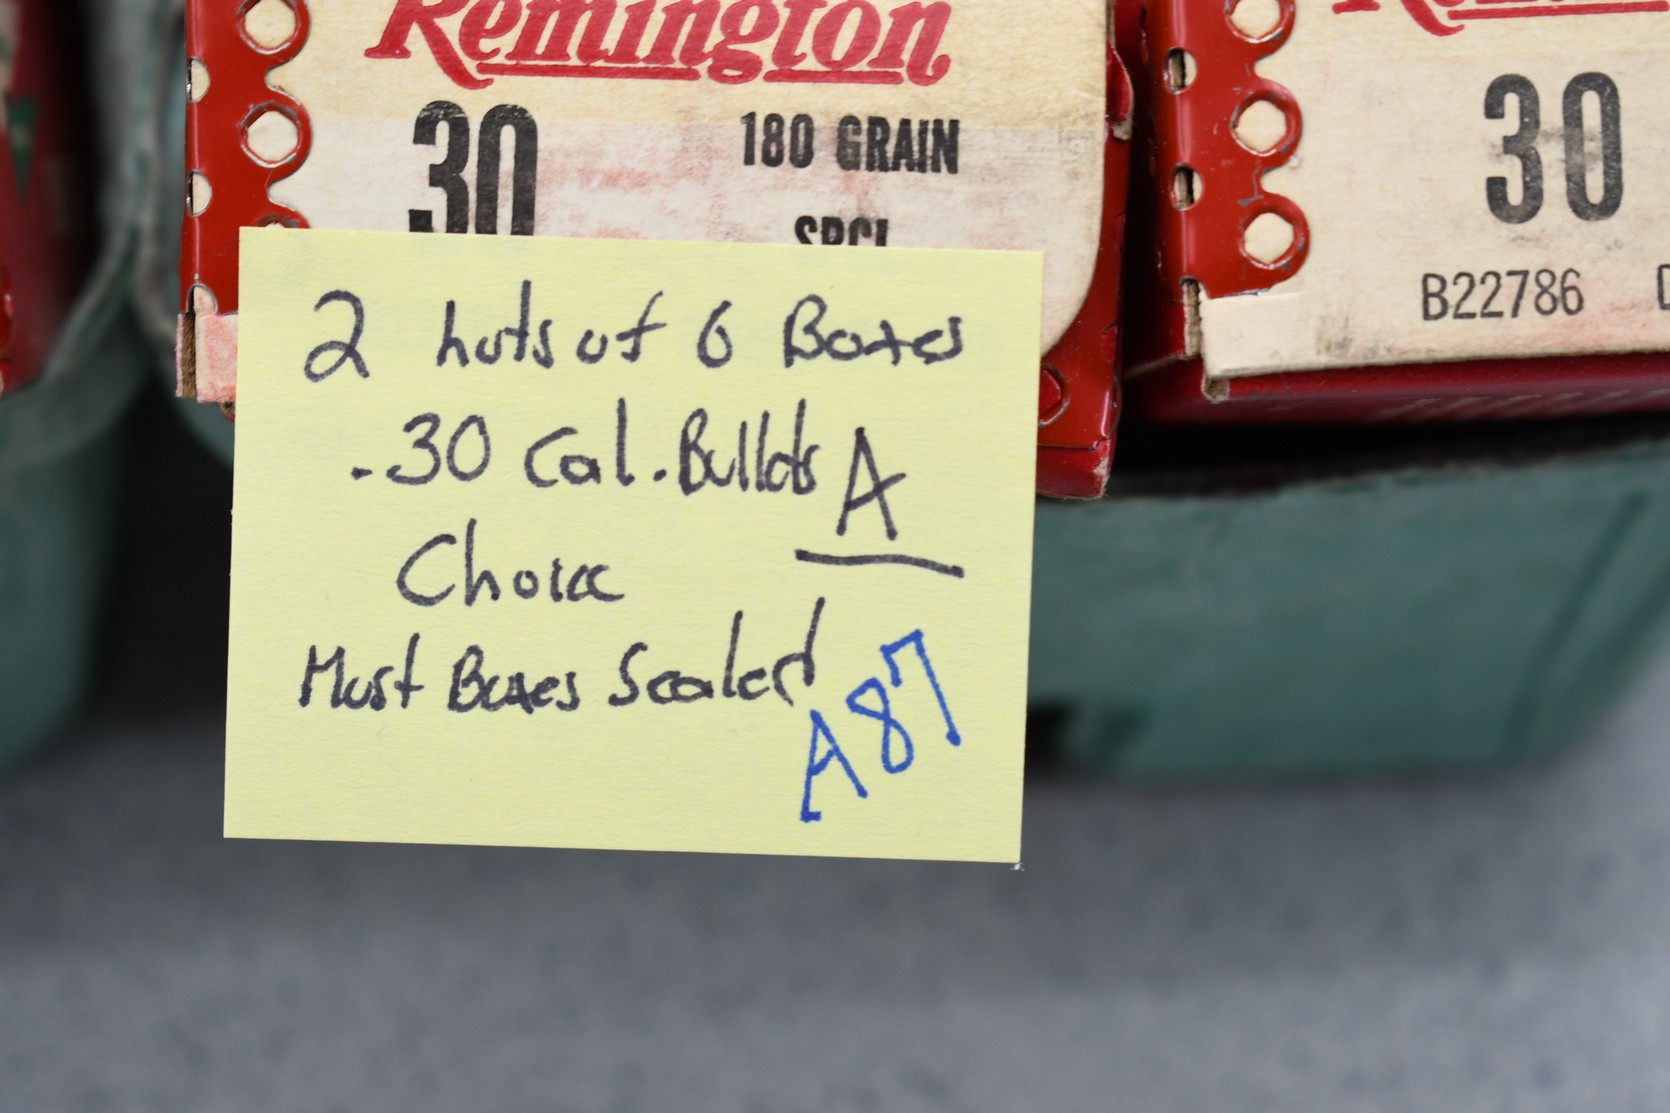 Remington
30 180 GRAIN
SPCL
30
B22786
2 Lots of 6 Boxes
.30 Cal. Bullets A
Choice
Most Boxes Sealed
A87